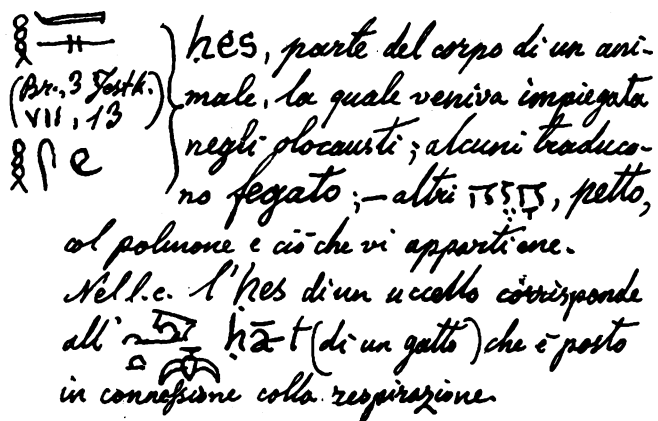 ḥes, parte del corpo di un ani-
(Br., 3 Festk.
VII, 13)
male, la quale veniva impiegata
negli olocausti; alcuni traduco-
no fegato; — altri , petto,
col polmone e ciò che vi appartiene.
Nel l.c. l'ḥes di un uccello corrisponde
all' ḥāt (di un gatto) che è posto
in connessione colla respirazione.